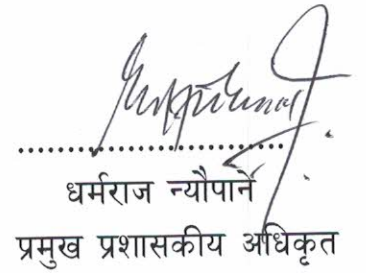 ........................................
धर्मराज न्यौपाने
प्रमुख प्रशासकीय अधिकृत